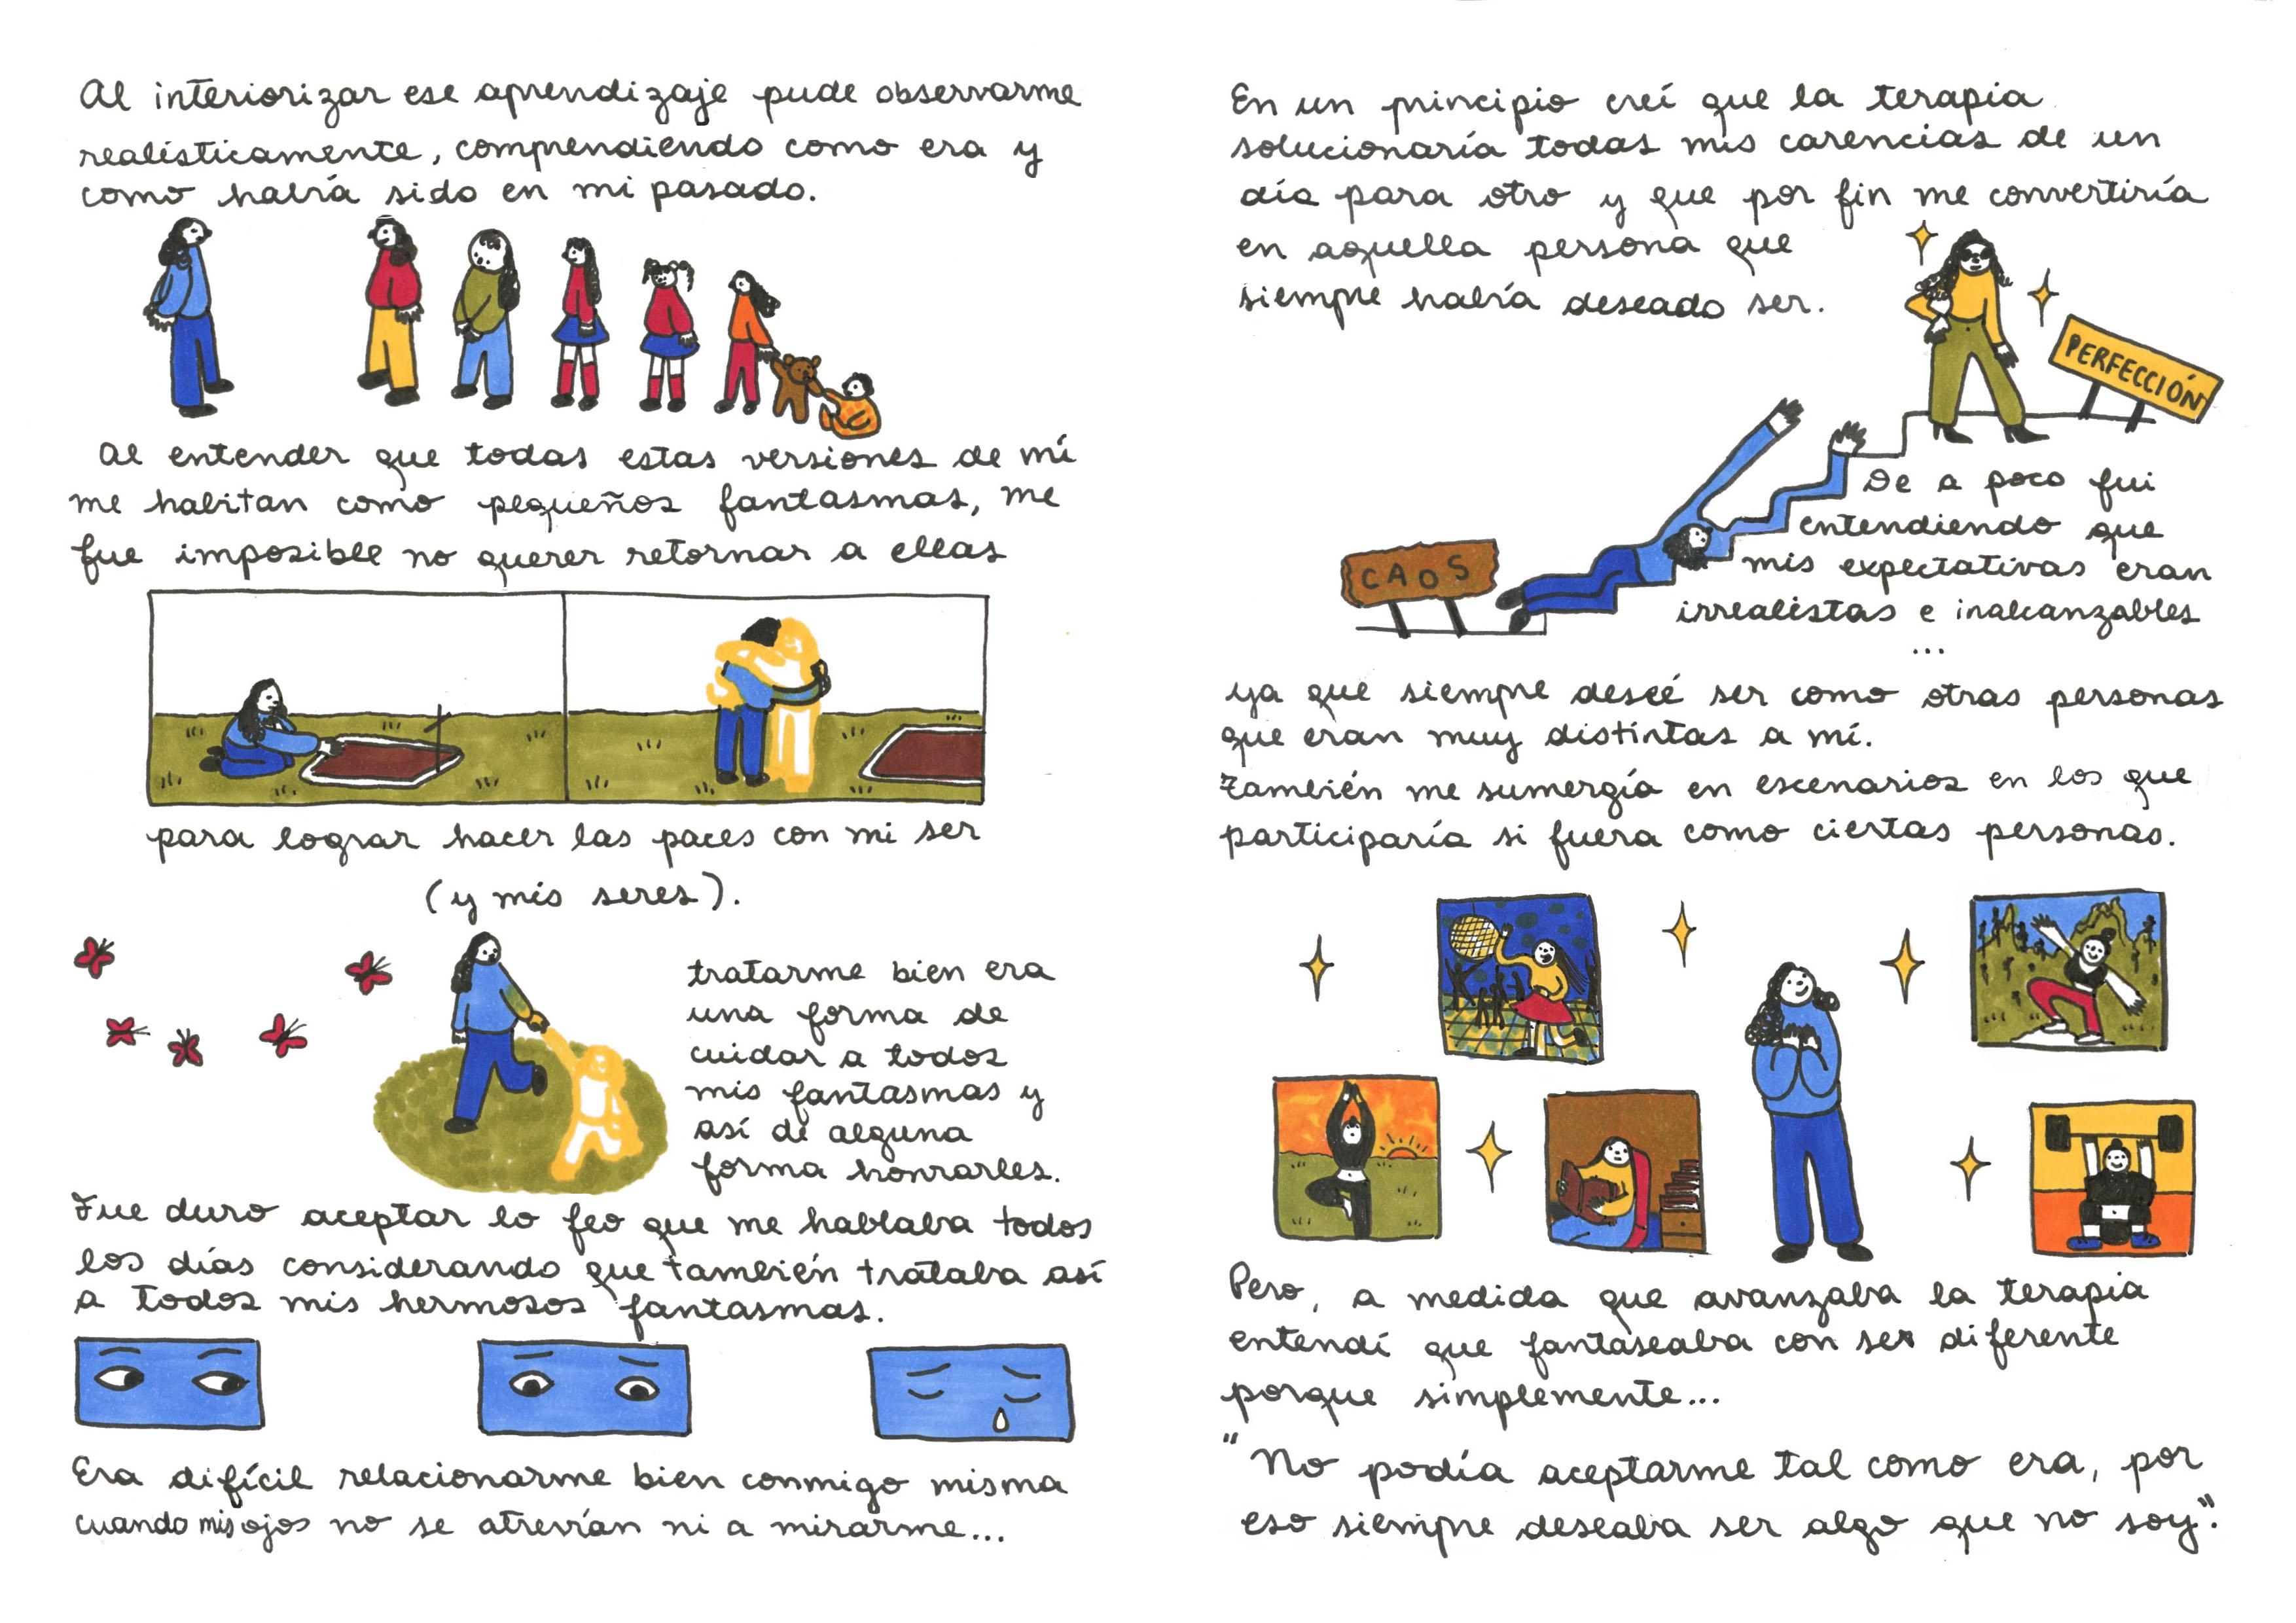 Al interiorizar ese aprendizaje pude observarme
realísticamente, comprendiendo como era y
como había sido en mi pasado.
Al entender que todas estas versiones de mí
me habitan como pequeños fantasmas, me
fue imposible no querer retornar a ellas
para lograr hacer las paces con mi ser
(y mis seres).
tratarme bien era
una forma de
cuidar a todos
mis fantasmas y
así de alguna
forma honrarles.
Fue duro aceptar lo feo que me hablaba todos
los días considerando que también trataba así
a todos mis hermosos fantasmas.
Era difícil relacionarme bien conmigo misma
cuando mis ojos no se atrevían ni a mirarme...
En un principio creí que la terapia
solucionaría todas mis carencias de un
día para otro y que por fin me convertiría
en aquella persona que
siempre había deseado ser.
PERFECCIÓN
CAOS
De a poco fui
entendiendo que
mis expectativas eran
irrealistas e inalcanzables
...
ya que siempre deseé ser como otras personas
que eran muy distintas a mí.
También me sumergía en escenarios en los que
participaría si fuera como ciertas personas.
Pero, a medida que avanzaba la terapia
entendí que fantaseaba con ser diferente
porque simplemente...
"No podía aceptarme tal como era, por
eso siempre deseaba ser algo que no soy".